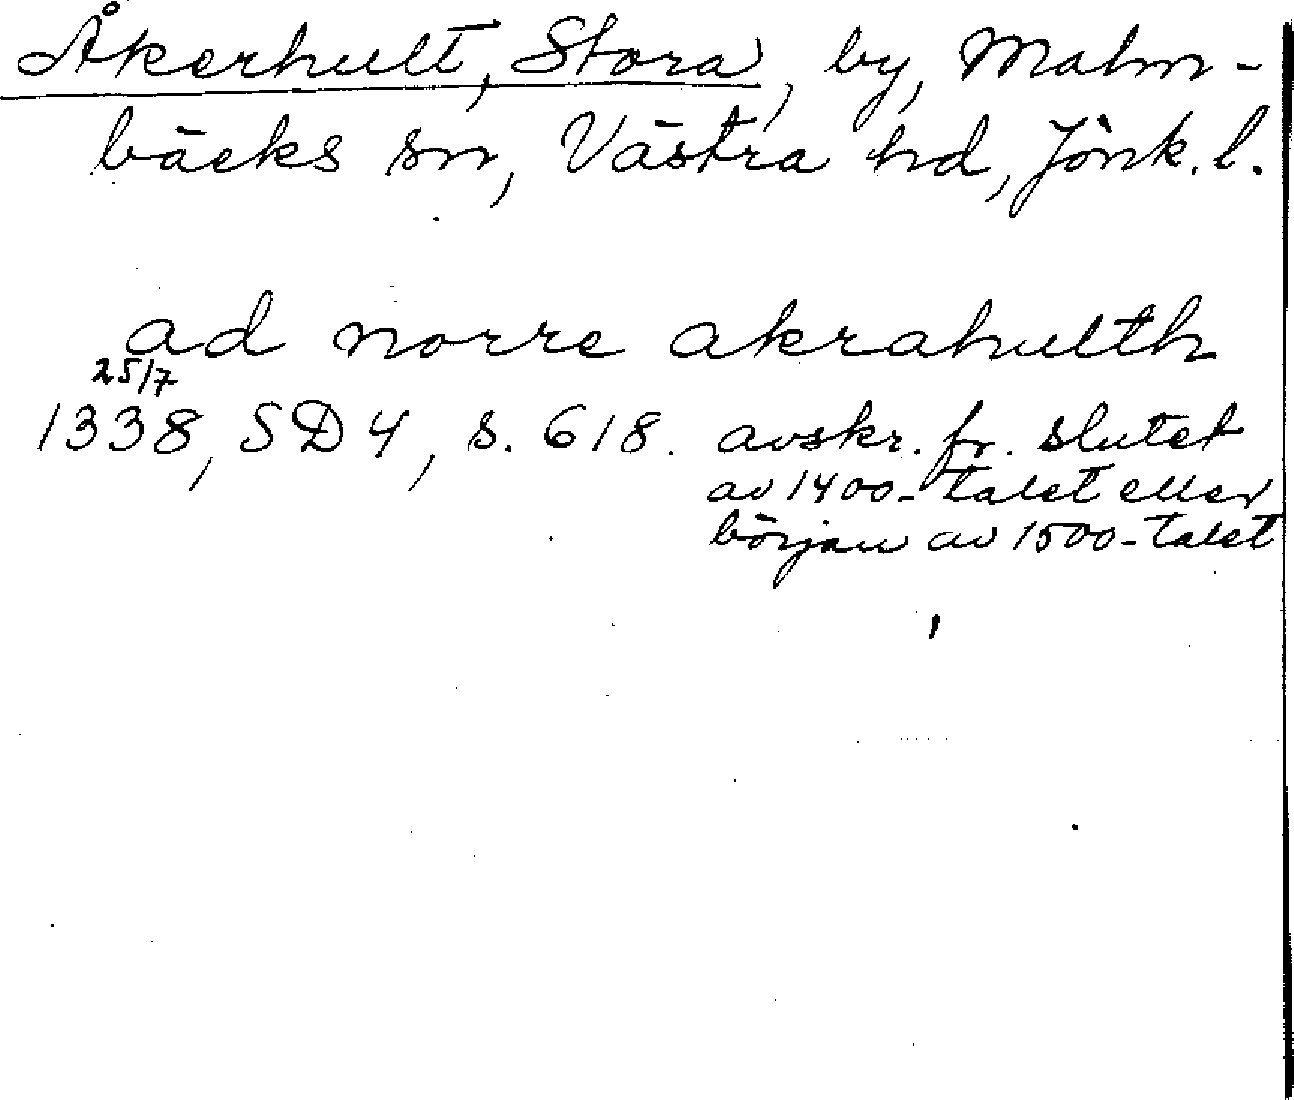 Åkerhult, Stora, by, Malm-
bäcks sn, Västra hd, Jönk. l.
ad norre akrahulth
25/7
1338, SD 4, s. 618. avskr. fr. slutet
av 1400-talet eller
början av 1500-talet